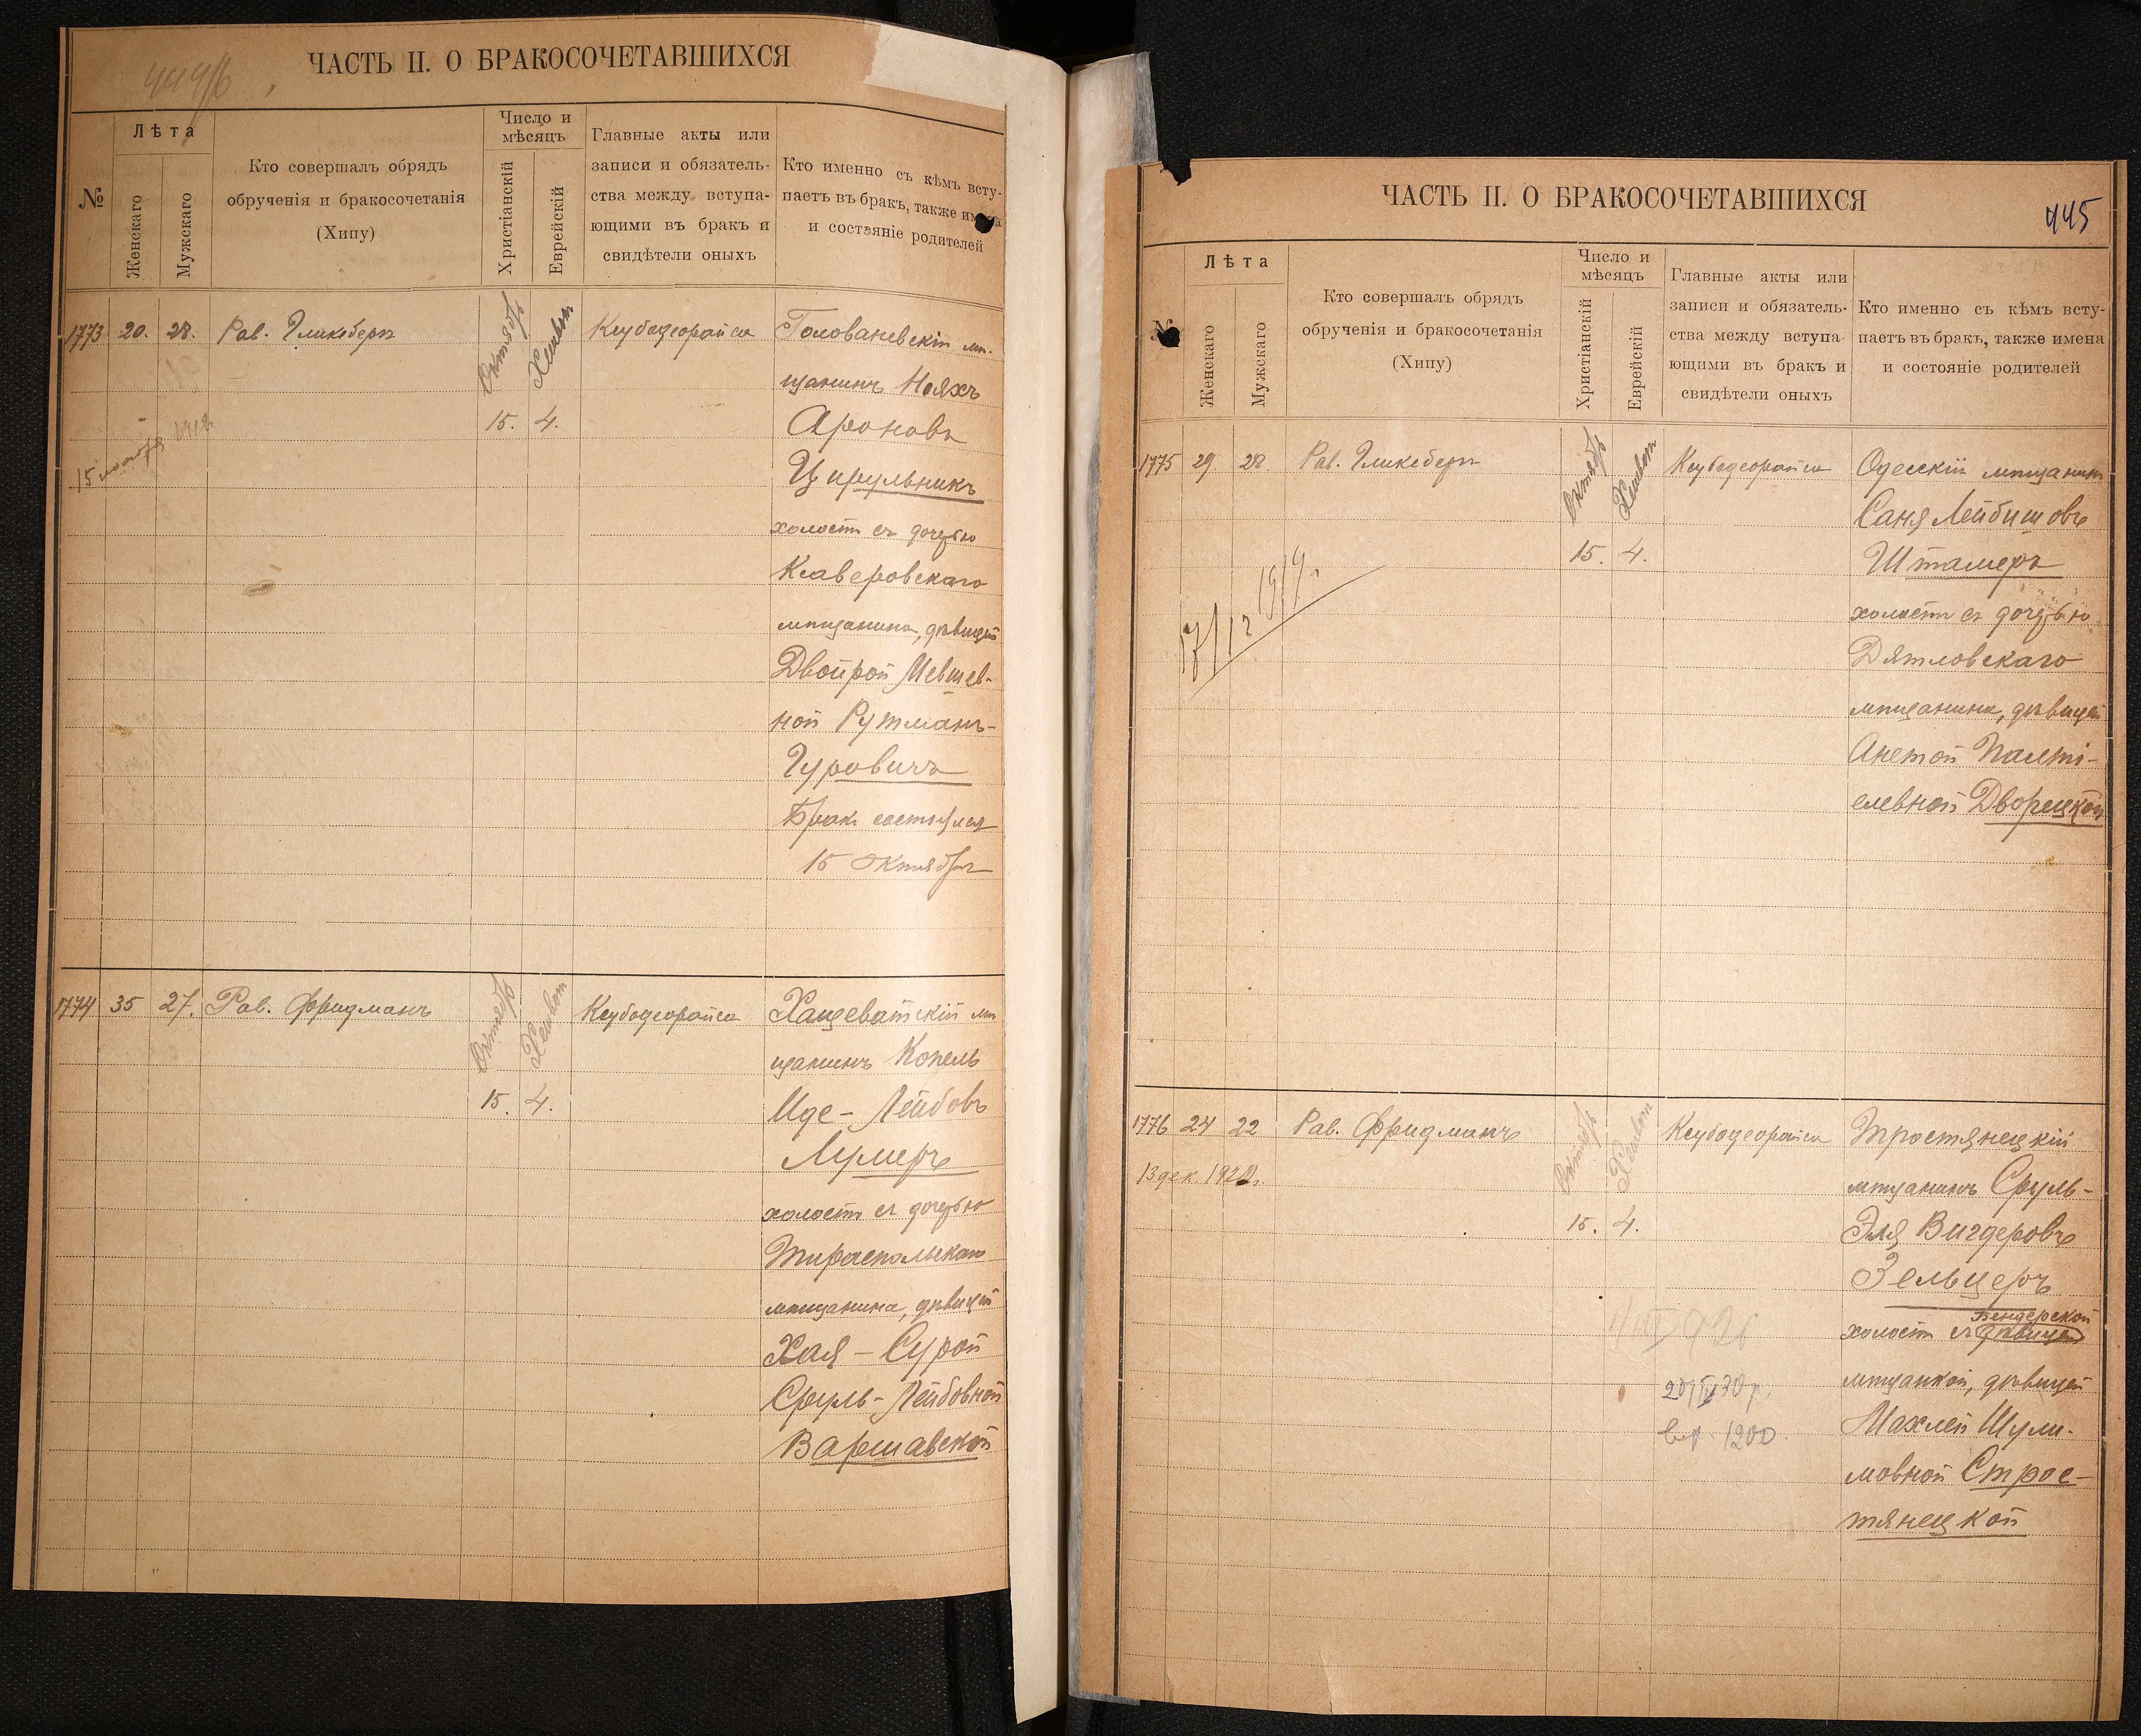 ЧАСТЬ II. О БРАКОСОЧЕТАВШИХСЯ
№
Лѣта
Женскаго
Мужскаго
Кто совершалъ обрядъ
обрученія и бракосочетанія
(Хипу)
Число и
мѣсяцъ
Христіанскій
Еврейскій
Главные акты или
записи и обязатель-
ства между вступа-
ющими въ бракъ и
свидѣтели оныхъ
Кто именно съ кѣмъ всту-
паетъ въ бракъ, также имена
и состояніе родителей
1773 20. 28. Рав. Гликсберг Октябрь Хешвон Ксубодеорайса Голованевскій мѣ-
щанинъ Нояхъ
15. 4. Ароновъ
Цирульникъ
холостъ съ дочерью
Клаверовскаго
мѣщанина, дѣвицей
Двойрой Иевшев-
ной Рутманъ-
Гуровичъ
Брак состоялся
15 октября
1774 35 27. Рав. Фридманъ Октябрь Хешвон Ксубодеорайса Хащеватскій мѣ
щанинъ Копель
15. 4. Иде-Лейбовъ
Лумеръ
холостъ съ дочерью
Тираспольскаго
мѣщанина, дѣвицей
Хая-Сурой
Сруль-Лейбовной
Варшавской
ЧАСТЬ II. О БРАКОСОЧЕТАВШИХСЯ
445
№
Лѣта
Женскаго
Мужскаго
Кто совершалъ обрядъ
обрученія и бракосочетанія
(Хипу)
Число и
мѣсяцъ
Христіанскій
Еврейскій
Главные акты или
записи и обязатель-
ства между вступа-
ющими въ бракъ и
свидѣтели оныхъ
Кто именно съ кѣмъ всту-
паетъ въ бракъ, также имена
и состояніе родителей
1775 29 28 Рав. Гликсберг Октябрь Хешвон Ксубодеорайса Одесскій мѣщанинъ
Саня Лейбишовъ
15. 4. Шталеръ
17/12 1919г.
холостъ съ дочерью
Дятловскаго
мѣщанина, дѣвицей
Анетой Палті-
елевной Дворецкой
1776 24 22 Рав. Фридманъ Октябрь Хешвон Ксубодеорайса Тростянецкій
13 дек. 1922г. мѣщанинъ Сруль-
15. 4. Эля Вигдеровъ
Зельцеръ
Бендерской
холостъ съ дѣвицей
мѣщанкой, дѣвицей
Махлей Шули-
1200
мовной Строс-
тянецкой